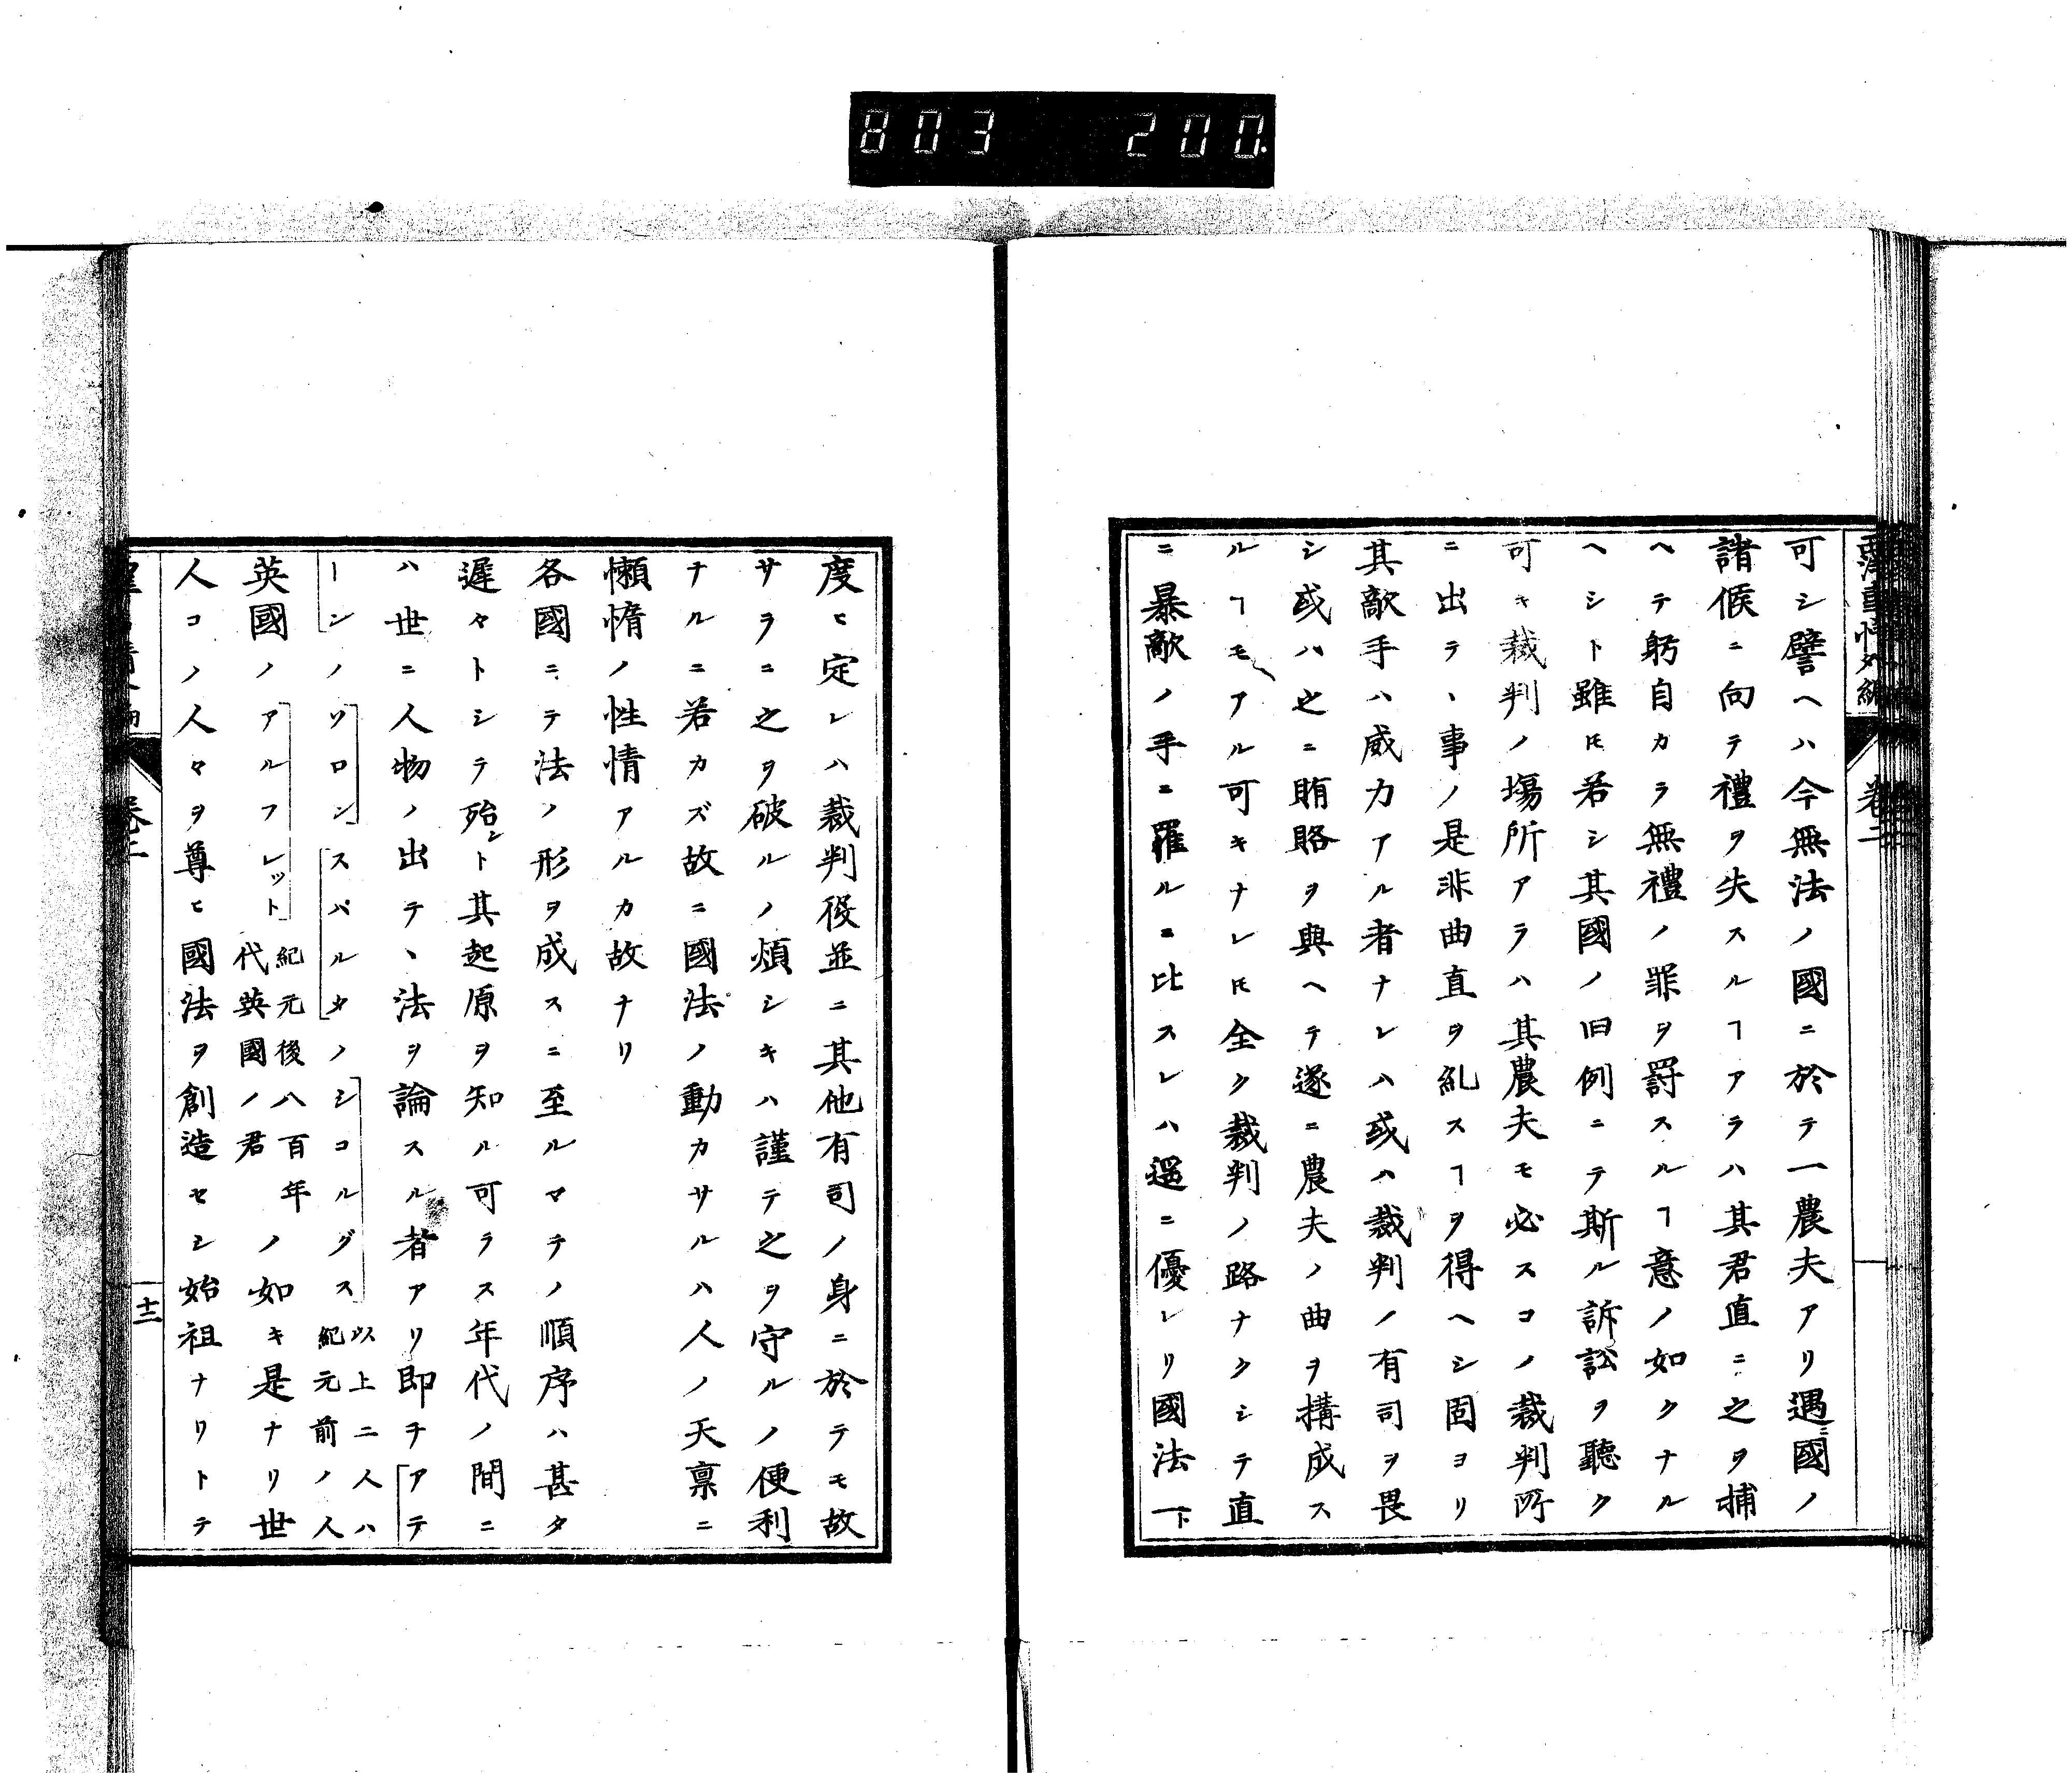 803 200
西洋事情外編 卷二
可シ譬ヘハ今無法ノ國ニ於テ一農夫アリ遇ニ國ノ
諸侯ニ向テ禮ヲ失スルヿアラハ其君直ニ之ヲ捕
ヘテ躬自カラ無禮ノ罪ヲ罸スルヿ意ノ如クナル
ヘシト雖𪜈若シ其國ノ旧例ニテ斯ル訴訟ヲ聽ク
可キ裁判ノ塲所アラハ其農夫モ必スコノ裁判所
ニ出テヽ事ノ是非曲直ヲ糺スヿヲ得ヘシ固ヨリ
其敵手ハ威力アル者ナレハ或ハ裁判ノ有司ヲ畏
シ或ハ之ニ賄賂ヲ與ヘテ遂ニ農夫ノ曲ヲ搆成ス
ルヿモアル可キナレ𪜈全ク裁判ノ路ナクシテ直
ニ暴敵ノ手ニ羅ルニ比スレハ逈ニ優レリ國法一下
度ヒ定レハ裁判役並ニ其他有司ノ身ニ於テモ故
サラニ之ヲ破ルノ煩シキハ謹テ之ヲ守ルノ便利
ナルニ若カズ故ニ國法ノ動カサルハ人ノ天禀ニ
懶惰ノ性情アルカ故ナリ
各國ニテ法ノ形ヲ成スニ至ルマテノ順序ハ甚タ
遲々トシテ殆ント其起原ヲ知ル可ラス年代ノ間ニ
ハ世ニ人物ノ出テヽ法ヲ論スル者アリ即チアテ
ーンノソロンスパルタノシコルグス以上二人ハ紀元前ノ人
英國ノアルフレット紀元後八百年代英國ノ君ノ如キ是ナリ世
人コノ人々ヲ尊ヒ國法ヲ創造セシ始祖ナリトテ
卷二 十三